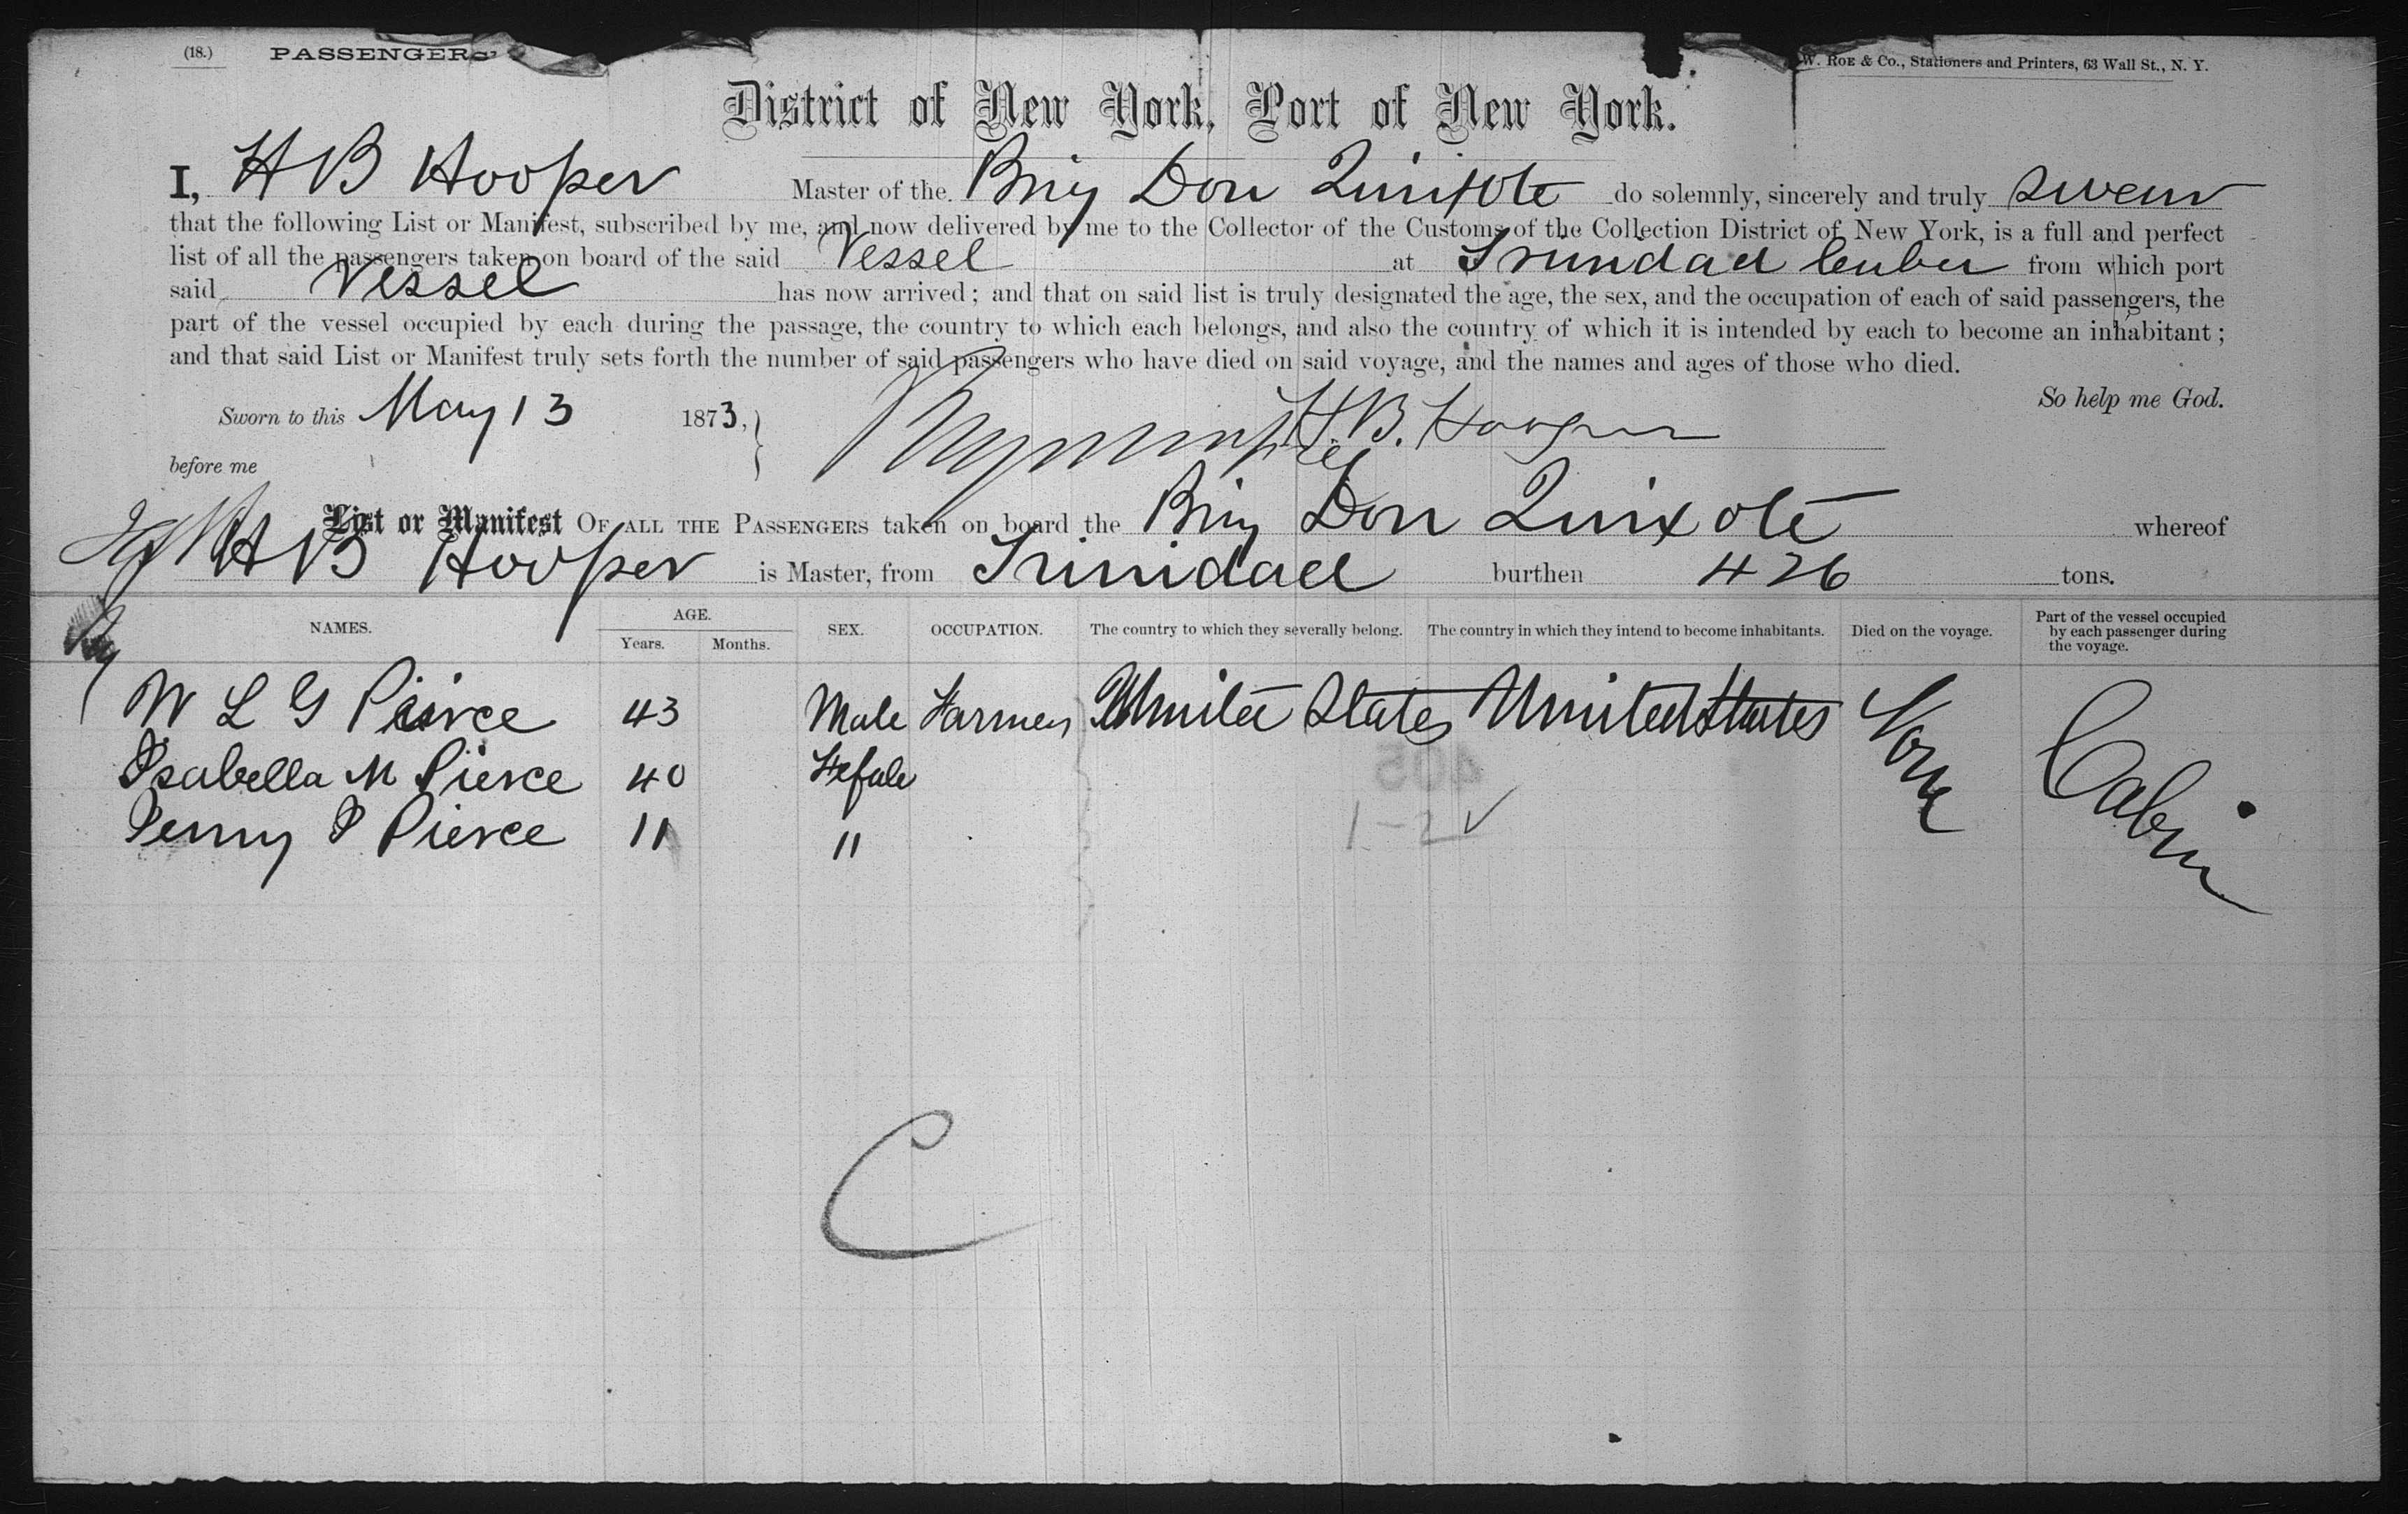 (18.) PASSENGERS' W. ROE & Co., Stationers and Printers, 63 Wall St., N. Y.
District of New York, Port of New York.
I, H B Hooper Master of the Brig Don Quixote do solemnly, sincerely and truly swear
that the following List or Manifest, subscribed by me, and now delivered by me to the Collector of the Customs of the Collection District of New York, is a full and perfect
list of all the passengers taken on board of the said Vessel at Trinidad Cuba from which port
said Vessel has now arrived; and that on said list is truly designated the age, the sex, and the occupation of each of said passengers, the
part of the vessel occupied by each during the passage, the country to which each belongs, and also the country of which it is intended by each to become an inhabitant;
and that said List or Manifest truly sets forth the number of said passengers who have died on said voyage, and the names and ages of those who died.
So help me God.
Sworn to this May 13 1873, H. B. Hooper
before me
List or Manifest OF ALL THE PASSENGERS taken on board the Brig Don Quixote whereof
H B Hooper is Master, from Trinidad burthen 426 tons.
NAMES. AGE. Years. Months. SEX. OCCUPATION. The country to which they severally belong. The country in which they intend to become inhabitants. Died on the voyage. Part of the vessel occupied by each passenger during the voyage.
W L G Pierce 43 Male Farmer United States United States None Cabin
Isabella M Pierce 40 Fefale
P Pierce 11 "
C